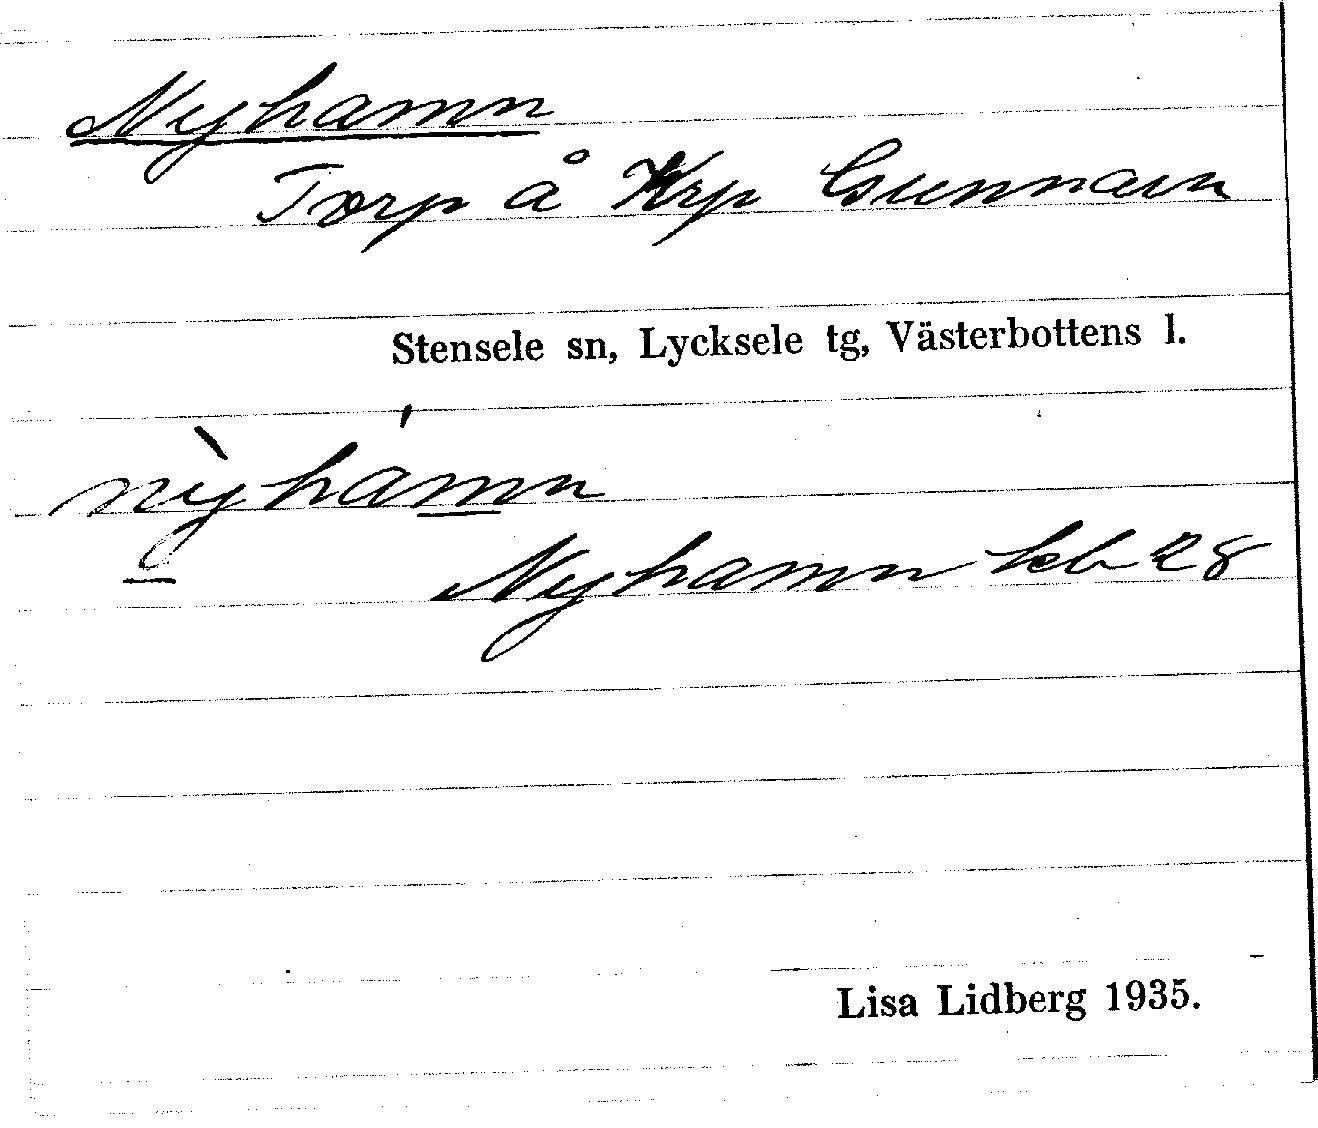 Nyhamn
Torp å Krp Gunnarn
Stensele sn, Lycksele tg, Västerbottens l.
nỳhámn
Nyhamn leb 28
Lisa Lidberg 1935.